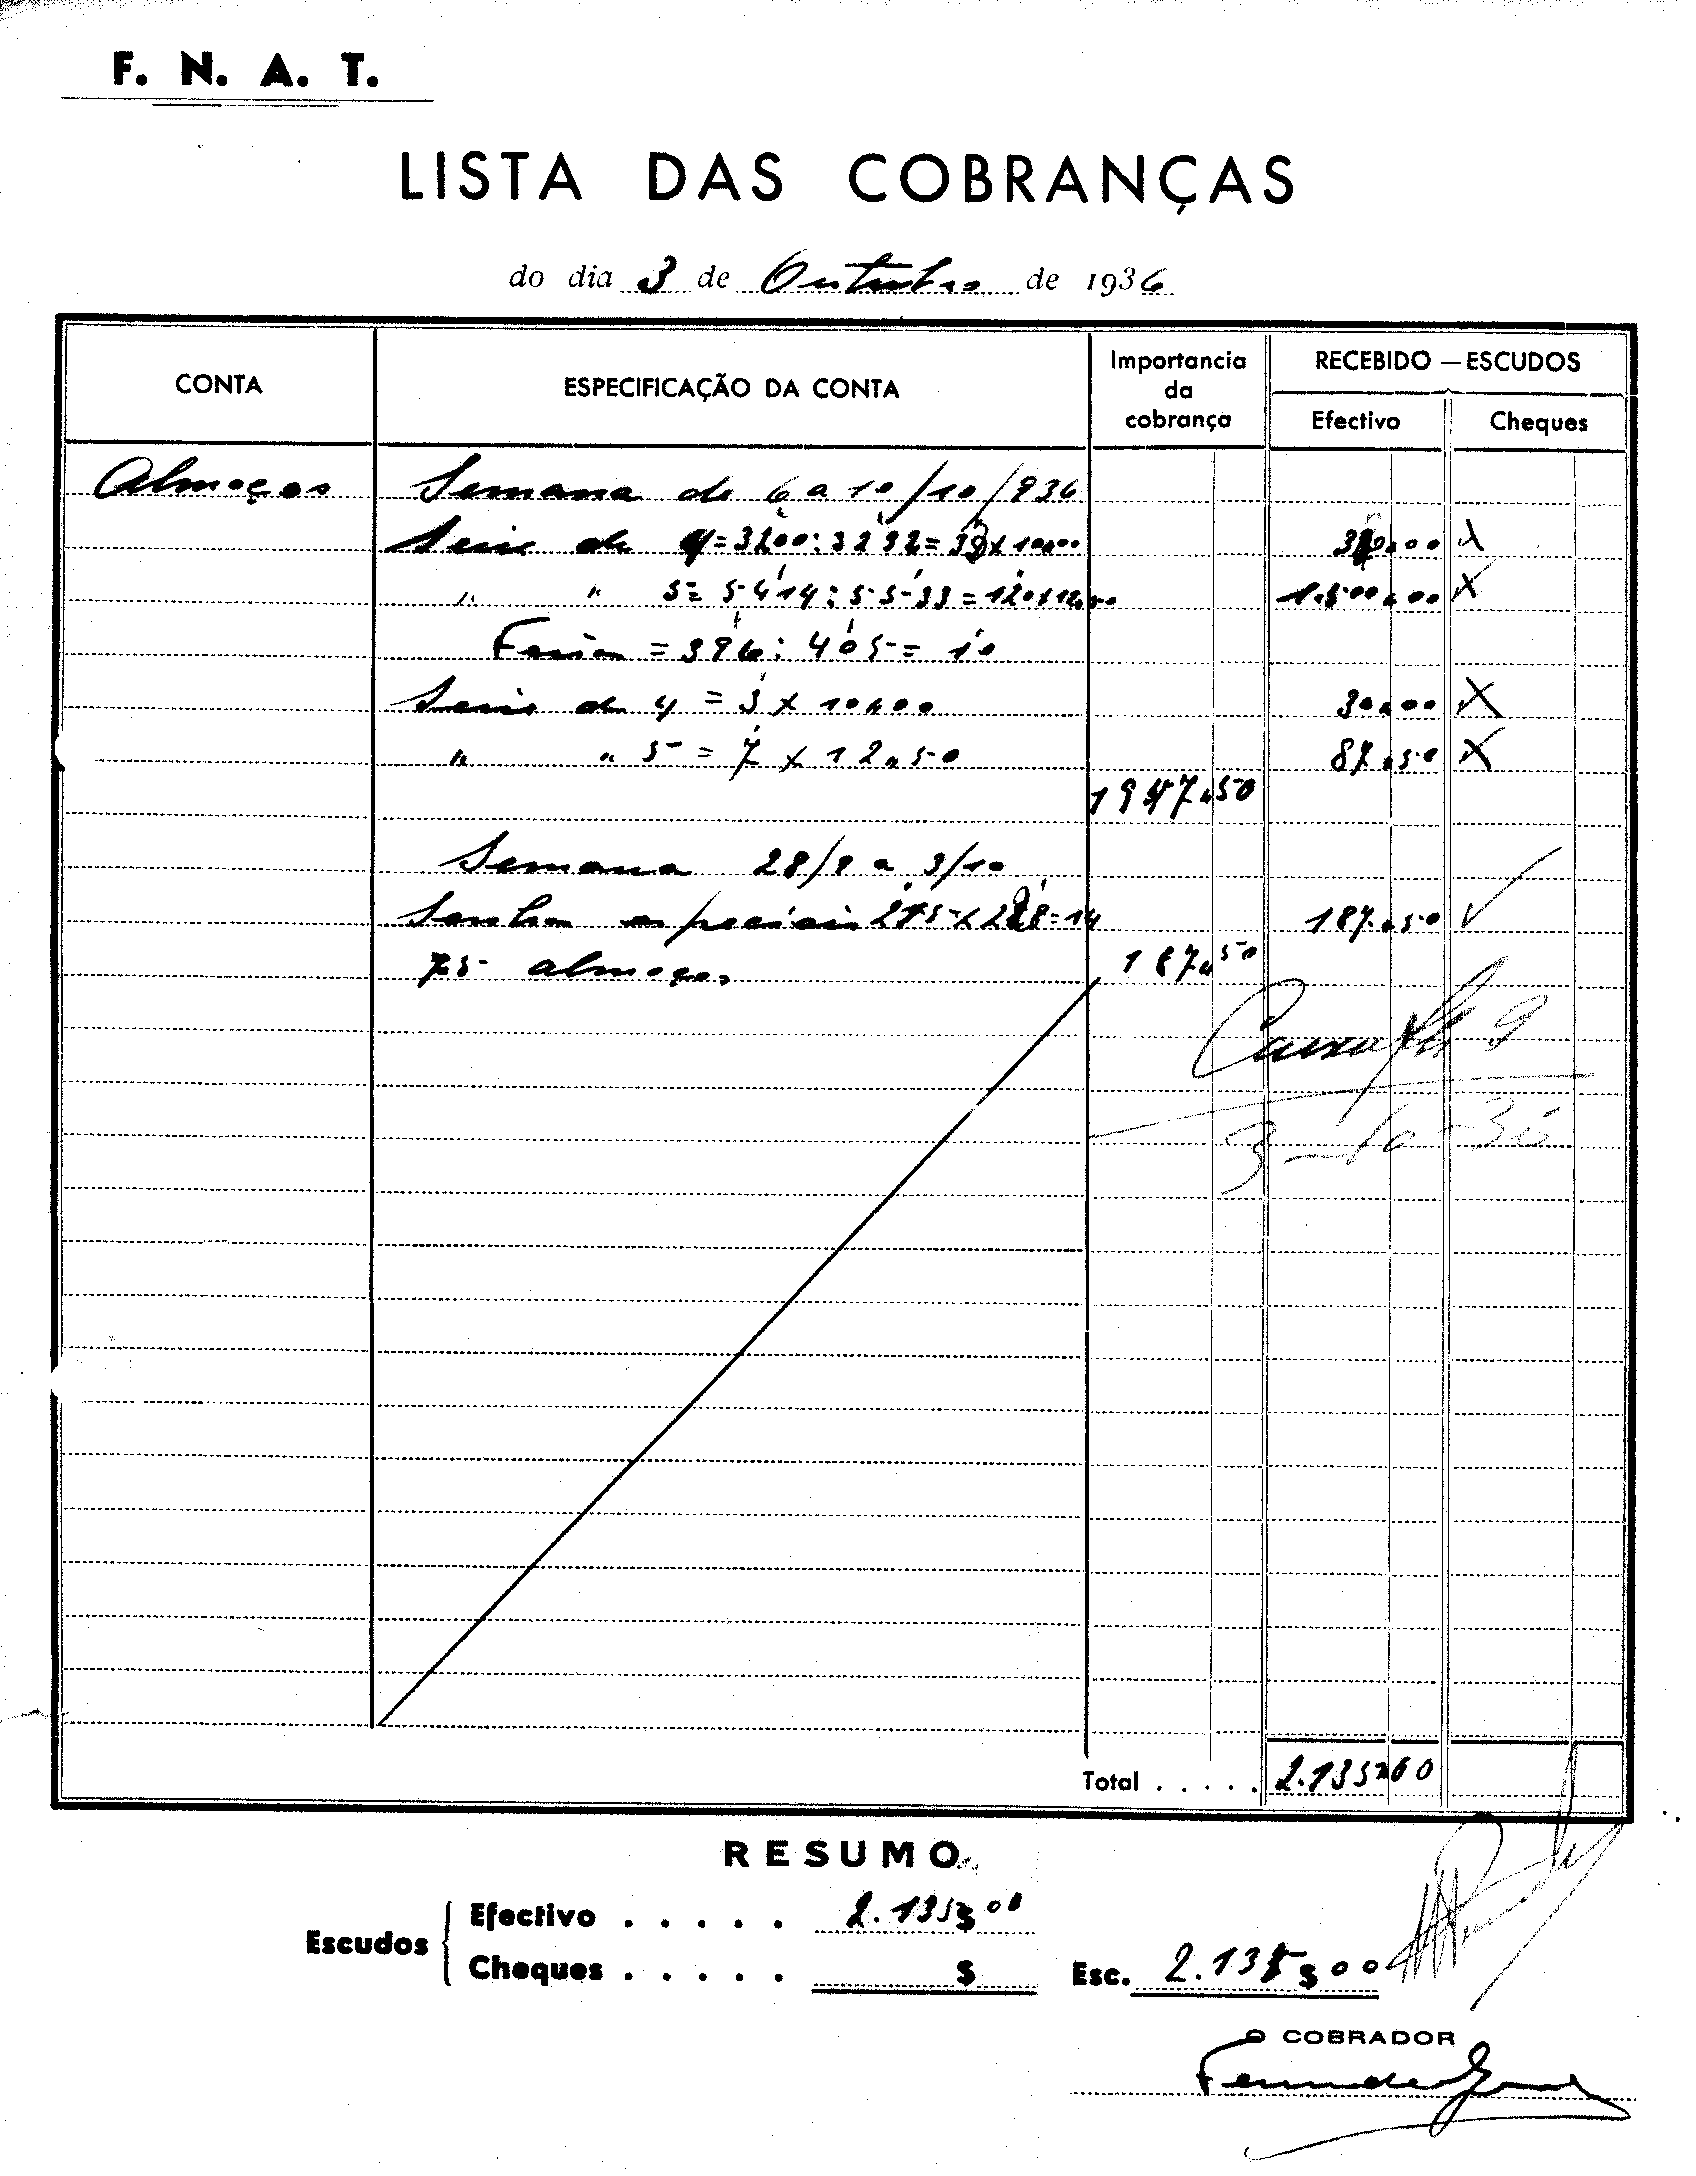 F. N. A. T.
LISTA DAS COBRANÇAS
do dia 3 de Outubro de 1936
CONTA
ESPECIFICAÇÃO DA CONTA
Importancia
da
cobrança
RECEBIDO — ESCUDOS
Efectivo
Cheques
Almoços Semana de 6 a 10/10/936
Serie de 4=3200:3232=33x10$00 330$00 x
" " 5=5414:5533=120x12$50 1.500$00 x
= 396: 405= 10
Serie de 4 = 3 x 10$00 30$00 x
" " 5 = 7 x 12$50 87$50 x
1947$50
Semana 28/9 a 3/10
Senhas especiais =14 187$50 ✓
75 almoços 187$50
Caixa 9
3-10-36
Total ..... 2.135$00
RESUMO
Escudos
Efectivo ..... 2.135$00
Cheques ..... $
Esc. 2.135$00
O COBRADOR